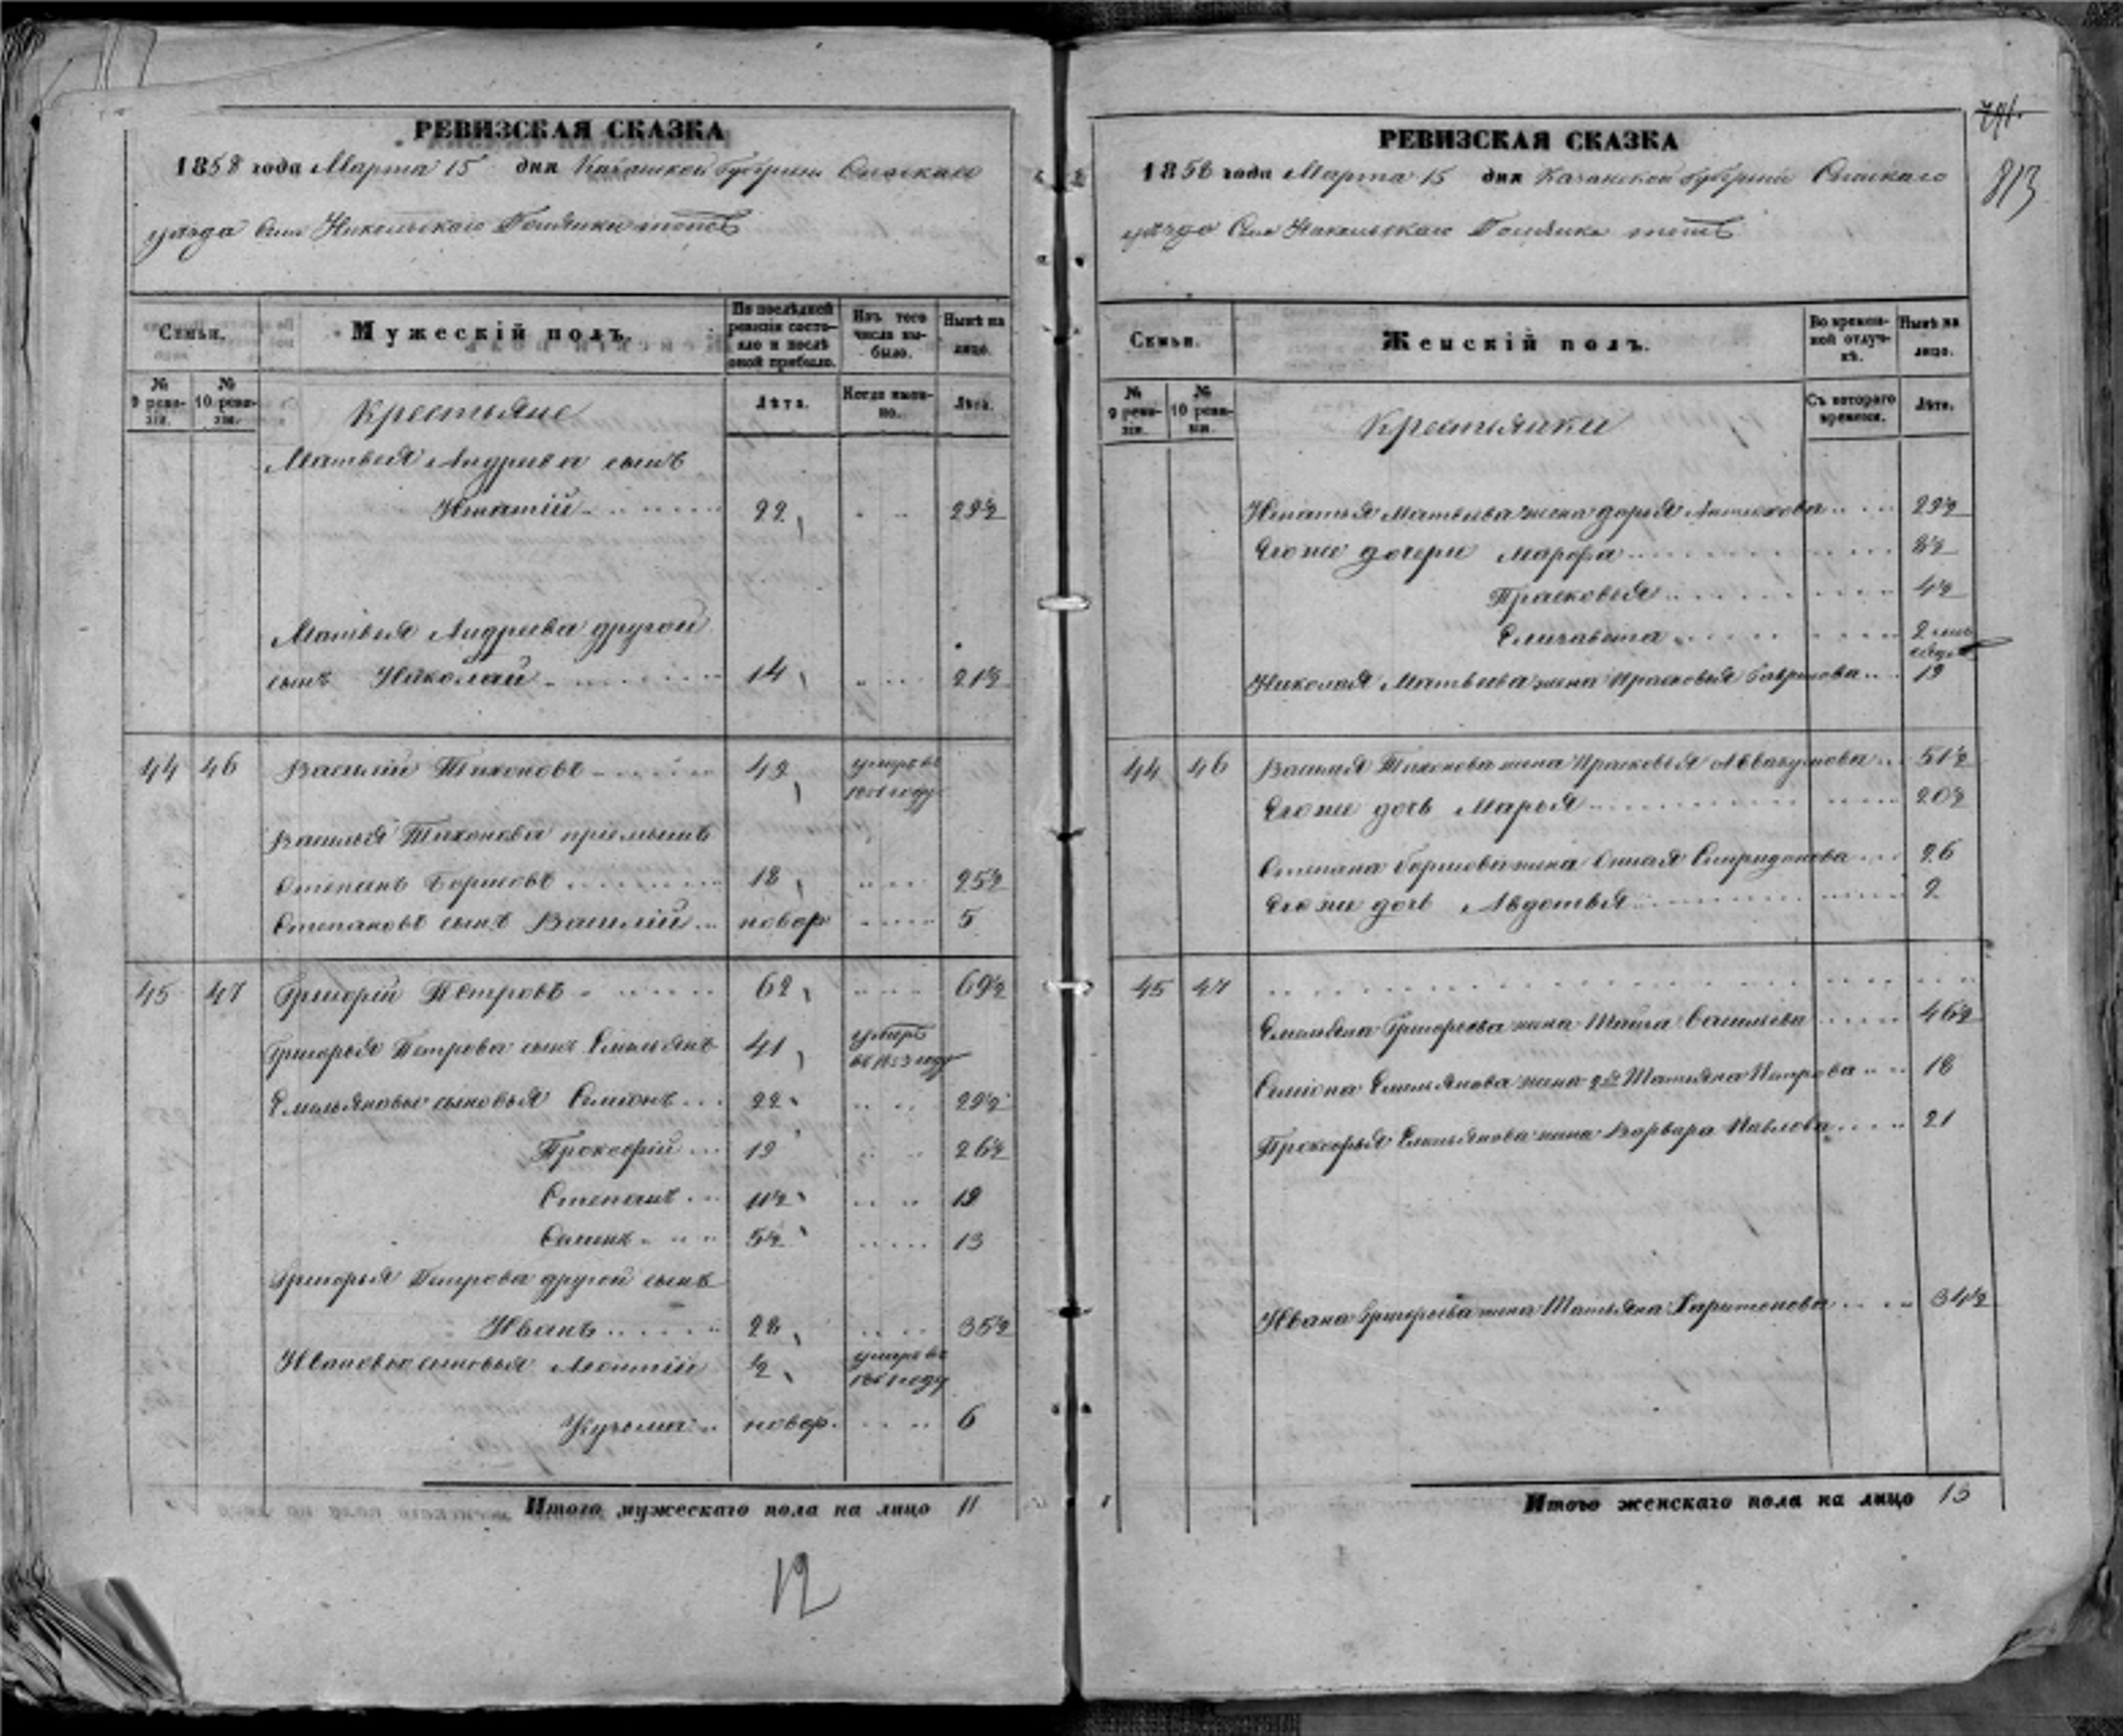 РЕВИЗСКАЯ СКАЗКА
1858 года Марта 15 дня Казанской губернии Спаскаго
уезда Села Никольскаго тожъ
Семьи.
Мужескій полъ.
По послѣдней ревизіи состояло и послѣ оной прибыло.
Изъ того числа выбыло.
Нынѣ на лицо.
№ 9 ревизіи.
№ 10 ревизіи.
Крестьяне
Лѣта.
Когда именно.
Лѣта.
Матвея Андреева сынъ
Игнатій 22 29½
Матвея Андреева другой
сынъ Николай 14 21½
44 46 Василій Тихоновъ 49 умеръ въ году
Василья Тихонова приемышъ
Степанъ Борисовъ 18 25½
Степановъ сынъ Василій новор 5
45 47 Григорій Петровъ 62 69½
Григорья Петрова сынъ Емельянъ 41 умеръ въ 1853 году
Емельяновы сыновья Семіонъ 22 29½
Прокофій 19 26½
Степанъ 11½ 19
5½ 13
Григорья Петрова другой сынъ
Иванъ 28 35½
Ивановы сыновья Леонтій ½ умеръ въ году
Кузьма новор. 6
Итого мужескаго пола на лицо 11
12
РЕВИЗСКАЯ СКАЗКА
813
1858 года Марта 15 дня Казанской губерніи Спаскаго
уезда Села Никольскаго тожъ
Семьи.
Женскій полъ.
Во временной отлучкѣ.
Нынѣ на лицо.
№ 9 ревизіи.
№ 10 ревизіи.
Крестьянки
Съ котораго времени.
Лѣта.
Игнатья Матвеева жена Дарья 29½
Его же дочери Марфа 8½
Прасковья 4½
Елизавета
Николая Матвеева жена Прасковья Гаврилова 19
44 46 Василья Тихонова жена Прасковья Аввакумова 51½
Его же дочь Марья 20½
Степана Борисова жена Спиридонова 26
Его же дочь Авдотья 2
45 47
Емельяна Григорьева жена Васильева 46½
Семіона Емельянова жена 2я Татьяна Петрова 18
Прокофья Емельянова жена Варвара Павлова 21
Ивана Григорьева жена Татьяна Харитонова 34½
Итого женскаго пола на лицо 13